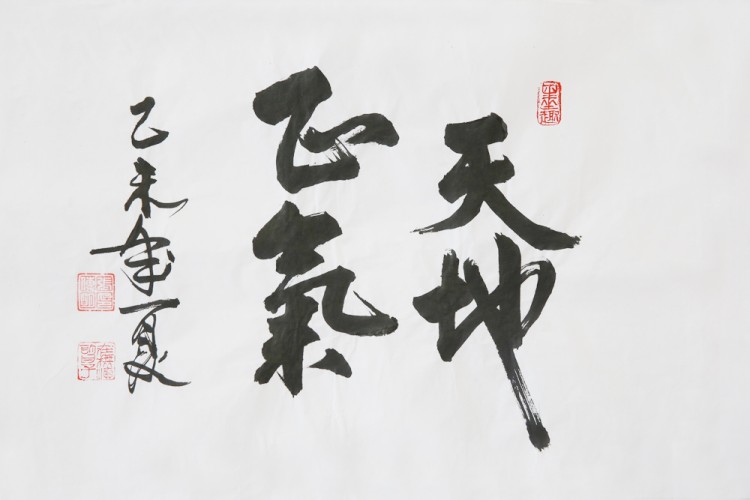 天地
正氣
乙未年夏